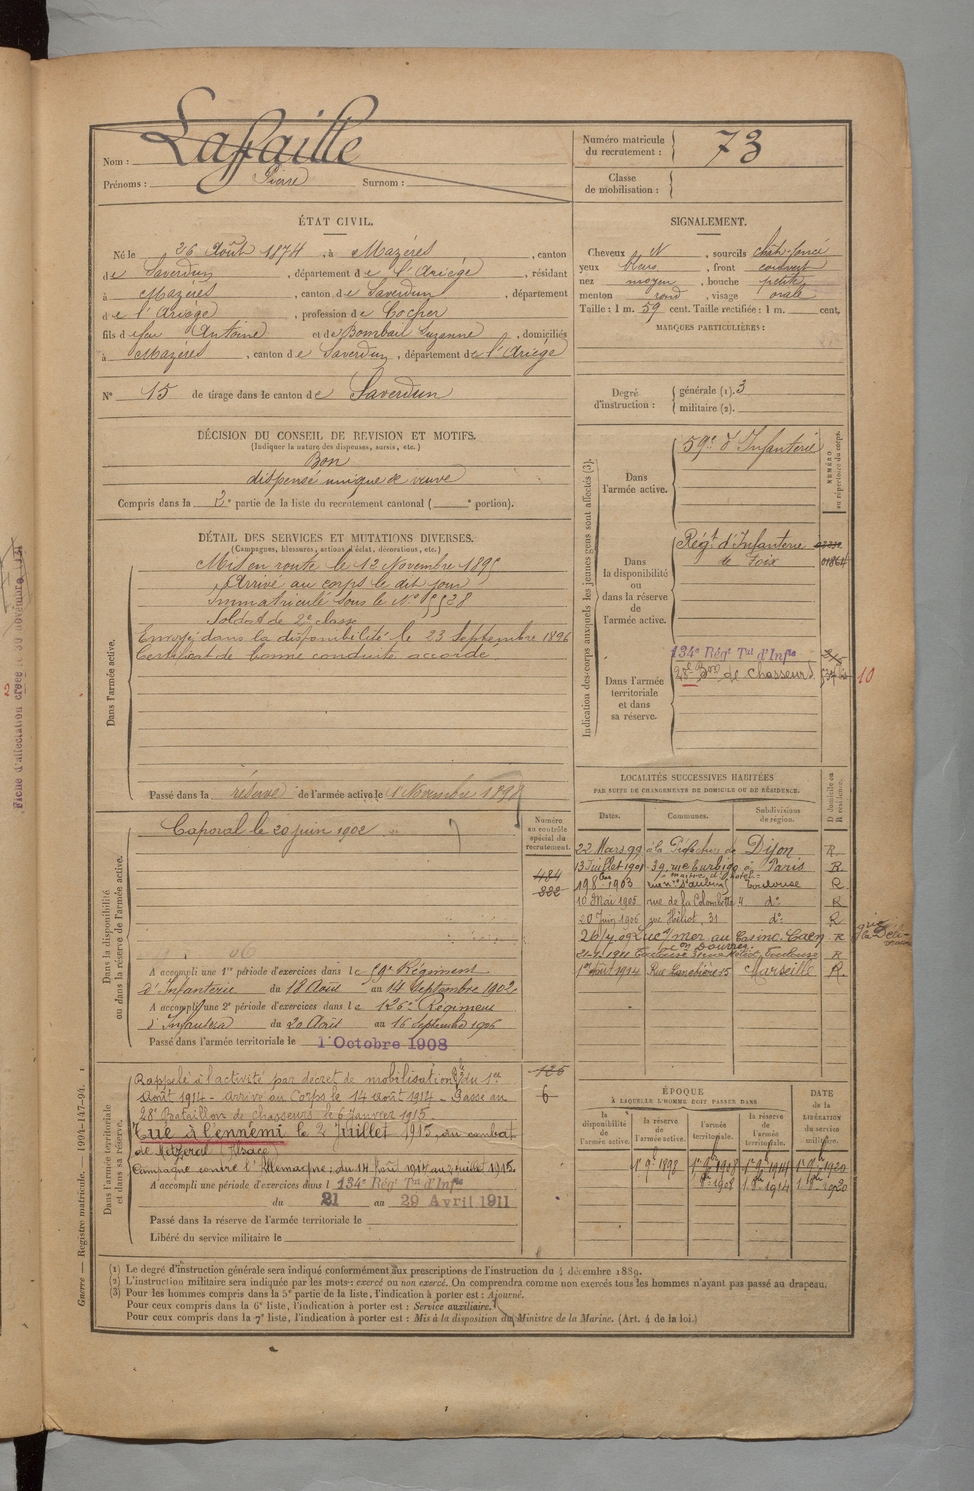 Nom : Laffaille
Prénoms : Pierre Surnom :
Numéro matricule du recrutement : 73
Classe de mobilisation :
ÉTAT CIVIL.
Né le 26 Août 1874, à Mazères, canton
de Saverdun, département de l'Ariège, résidant
à Mazères, canton de Saverdun, département
de l'Ariège, profession de Cocher
fils de feu Antoine et de Bombail Suzanne, domiciliés
à Mazères, canton de Saverdun, département de l'Ariège
N° 15 de tirage dans le canton de Saverdun
SIGNALEMENT.
Cheveux N, sourcils chât-foncé
yeux bleus, front couvert
nez moyen, bouche petite
menton rond, visage ovale
Taille : 1 m. 59 cent. Taille rectifiée : 1 m. cent.
MARQUES PARTICULIÈRES :
Degré d'instruction : générale (1). 3
militaire (2).
DÉCISION DU CONSEIL DE REVISION ET MOTIFS.
(Indiquer la nature des dispenses, sursis, etc.)
Bon
dispensé unique de veuve
Compris dans la 2e partie de la liste du recrutement cantonal ( e portion).
DÉTAIL DES SERVICES ET MUTATIONS DIVERSES.
(Campagnes, blessures, actions d'éclat, décorations, etc.)
Dans l'armée active.
Mis en route le 12 Novembre 1895
Arrivé au corps le dit jour
Immatriculé sous le N° 5538
Soldat de 2e classe
Envoyé dans la disponibilité le 23 Septembre 1896
Certificat de bonne conduite accordé
Passé dans la réserve de l'armée active le 1 Novembre 1898
Indication des corps auxquels les jeunes gens sont affectés (3).
NUMÉRO au répertoire du corps.
Dans l'armée active.
59e d'Infanterie
Dans la disponibilité ou dans la réserve de l'armée active.
Régt d'Infanterie
de Foix
01864
Dans l'armée territoriale et dans sa réserve.
134e Régt Tal d'Infie
28e Bon de Chasseurs
10
Dans la disponibilité ou dans la réserve de l'armée active.
Caporal le 20 juin 1902
A accompli une 1re période d'exercices dans le 59e Régiment
d'Infanterie du 18 Août au 14 Septembre 1902
A accompli une 2e période d'exercices dans le 126e Régiment
d'Infanterie du 20 Août au 16 Septembre 1906
Passé dans l'armée territoriale le 1 Octobre 1908
Numéro au contrôle spécial du recrutement.
484
222
126
6
LOCALITÉS SUCCESSIVES HABITÉES
PAR SUITE DE CHANGEMENTS DE DOMICILE OU DE RÉSIDENCE.
Dates. Communes. Subdivisions de région. D domicile ou R résidence.
22 Mars 99 Dijon R
13 Juillet 1901 39, rue Turbigo à Paris R
maître d'hotel
19 8bre 1903 rue St Aubin Toulouse R
10 Mai 1905 rue de la Colombette 4 do R
20 Juin 1906 rue Héliot, 31 do R
Luc s/mer au Casino Caen R
1er Août 1914 Rue Cannebière 15 Marseille R.
Dans l'armée territoriale et dans sa réserve.
Rappelé à l'activité par décret de mobilisation Gle du 1er
Août 1914 - Arrivé au Corps le 14 Août 1914 - Passé au
28e Bataillon de Chasseurs le 6 Janvier 1915.
Tué à l'ennemi le 2 Juillet 1915, au combat
de Metzeral (Alsace)
Campagne contre l'Allemagne : du 14 Août 1914 au 2 juillet 1915.
A accompli une période d'exercices dans l 134e Régt Tal d'Infie
du 21 au 29 Avril 1911
Passé dans la réserve de l'armée territoriale le
Libéré du service militaire le
ÉPOQUE
À LAQUELLE L'HOMME DOIT PASSER DANS
la disponibilité de l'armée active. la réserve de l'armée active. l'armée territoriale. la réserve de l'armée territoriale.
DATE de la LIBÉRATION du service militaire.
1er 9e 1898
(1) Le degré d'instruction générale sera indiqué conformément aux prescriptions de l'instruction du 4 décembre 1889.
(2) L'instruction militaire sera indiquée par les mots : exercé ou non exercé. On comprendra comme non exercés tous les hommes n'ayant pas passé au drapeau.
(3) Pour les hommes compris dans la 5e partie de la liste, l'indication à porter est : Ajourné.
Pour ceux compris dans la 6e liste, l'indication à porter est : Service auxiliaire.
Pour ceux compris dans la 7e liste, l'indication à porter est : Mis à la disposition du Ministre de la Marine. (Art. 4 de la loi.)
Guerre — Registre matricule. — 1994-147-94.
Fiche d'affectation créée le 30 novembre 131